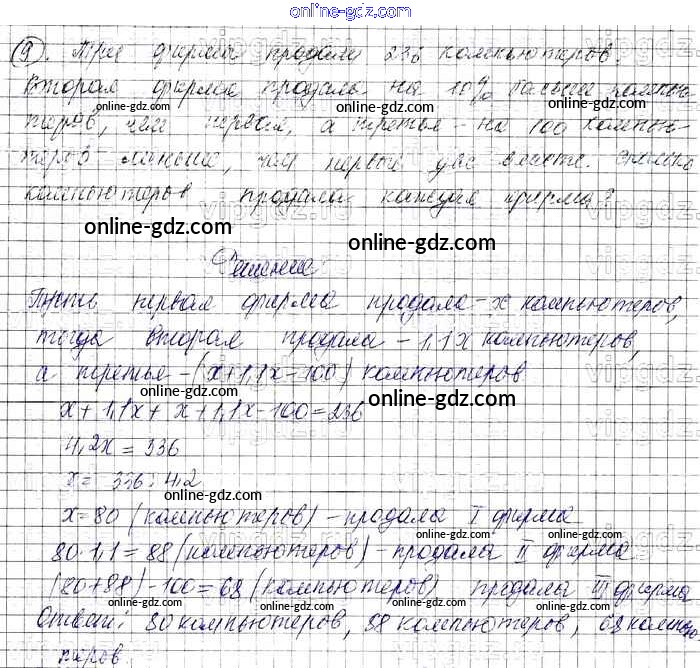 online-gdz.com
(9). Три фирмы продали 236 компьютеров.
Вторая фирма продала на 10% больше компью-
online-gdz.com
теров, чем первая, а третья - на 100 компью-
теров меньше, чем первые две вместе. Сколько
online-gdz.com
компьютеров продала каждая фирма?
online-gdz.com
online-gdz.com
Решение
Пусть первая фирма продала - x компьютеров,
online-gdz.com
тогда вторая продала - 1,1x компьютеров,
а третья - (x+1,1x-100) компьютеров
online-gdz.com
x + 1,1x + x + 1,1x - 100 = 236
4,2x = 336
x = 336 : 4,2
online-gdz.com
x = 80 (компьютеров) - продала I фирма
online-gdz.com
80 · 1,1 = 88 (компьютеров) - продала II фирма
online-gdz.com
(80+88) - 100 = 68 (компьютеров) продала III фирма
online-gdz.com
online-gdz.com
Ответ: 80 компьютеров, 88 компьютеров, 68 компью-
online-gdz.com
теров.